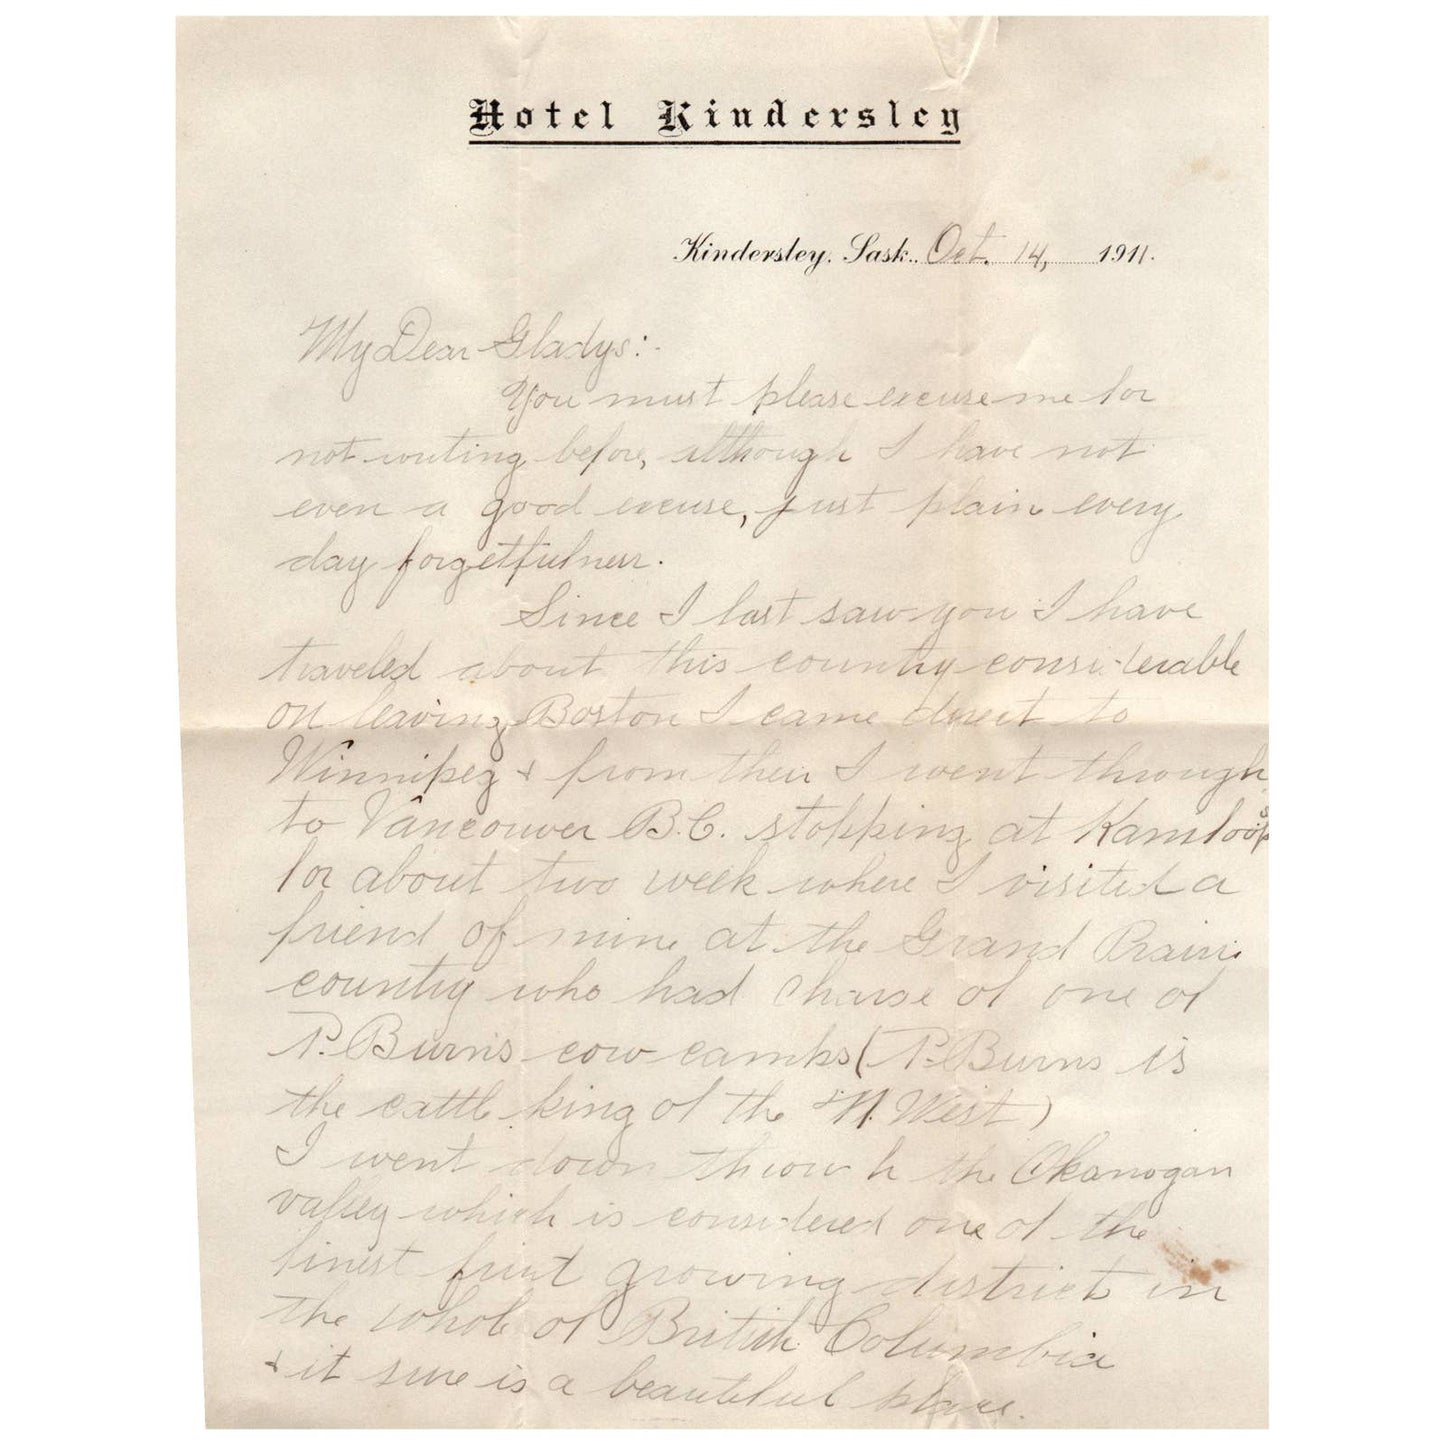 Hotel Kindersley
Kindersley, Sask., Oct. 14, 1911.
My Dear Gladys:-
You must please excuse me for
not writing before, although I have not
even a good excuse, just plain every
day forgetfulness.
Since I last saw you I have
traveled about this country considerable
on leaving Boston I came direct to
Winnipeg & from their I went through
to Vancouver B.C. stopping at Kamloops
for about two week where I visited a
friend of mine at the Grand Prairie
country who had charge of one of
P. Burns cow camps (P. Burns is
the cattle king of the N. West)
I went down through the Okanogan
valley which is considered one of the
finest fruit growing district in
the whole of British Columbia
& it sure is a beautiful place.